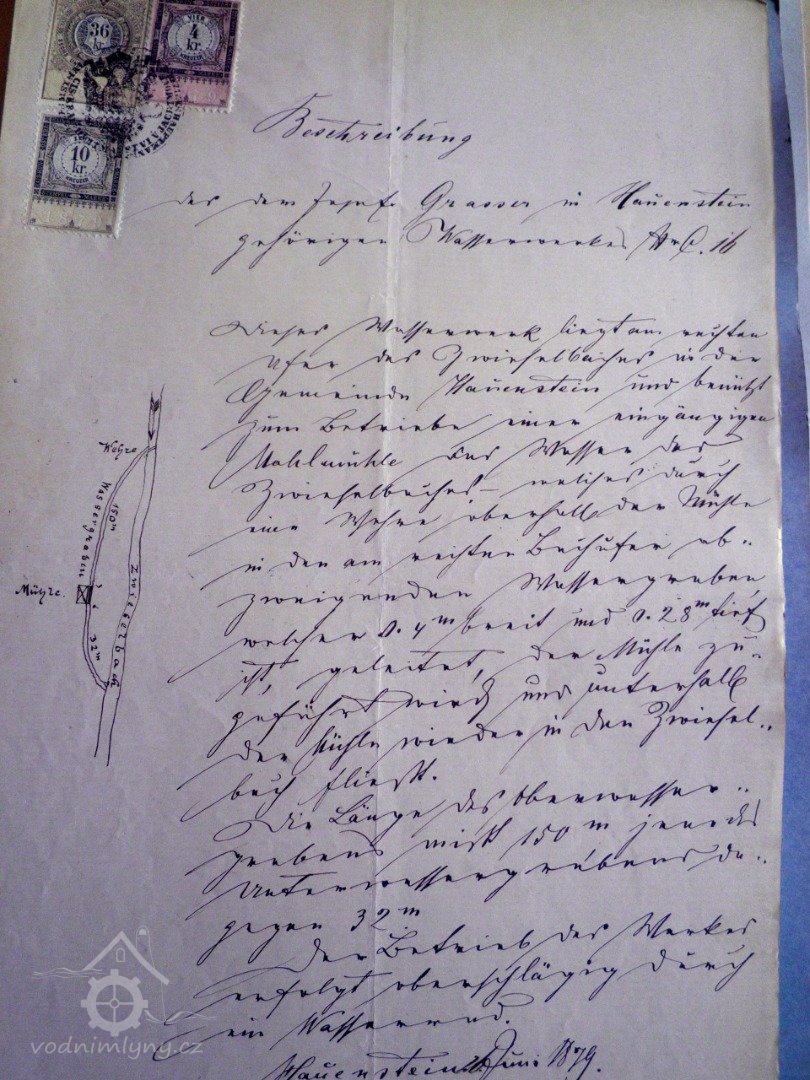 36
kr.
4
kr.
10
kr.
Beschreibung
des dem Josef Grasser in Hauenstein
gehörigen Wasserwerkes NrC. 16
Dieses Wasserwerk liegt am rechten
Ufer des Zwieselbaches in der
Gemeinde Hauenstein und benützt
zum Betriebe einer eingängigen
Mahlmühle das Wasser des
Zwieselbaches – welches durch
eine Wehre oberhalb der Mühle
in den am rechten Bachufer ab-
zweigenden Wassergraben,
welcher 0.4m breit und 0.28m tief
ist, geleitet, der Mühle zu-
geführt wird und unterhalb
der Mühle wieder in den Zwiesel-
bach fließt.
Die Länge des Oberwasser-
grabens mißt 150 m jene des
Unterwassergrabens da-
gegen 32m
Der Betrieb des Werkes
erfolgt oberschlägig durch
ein Wasserrad.
Hauenstein Juni 1879.
Wehre
Wassergraben
150m
Zwieselbach
Mühle.
32m
vodnimlyny.cz